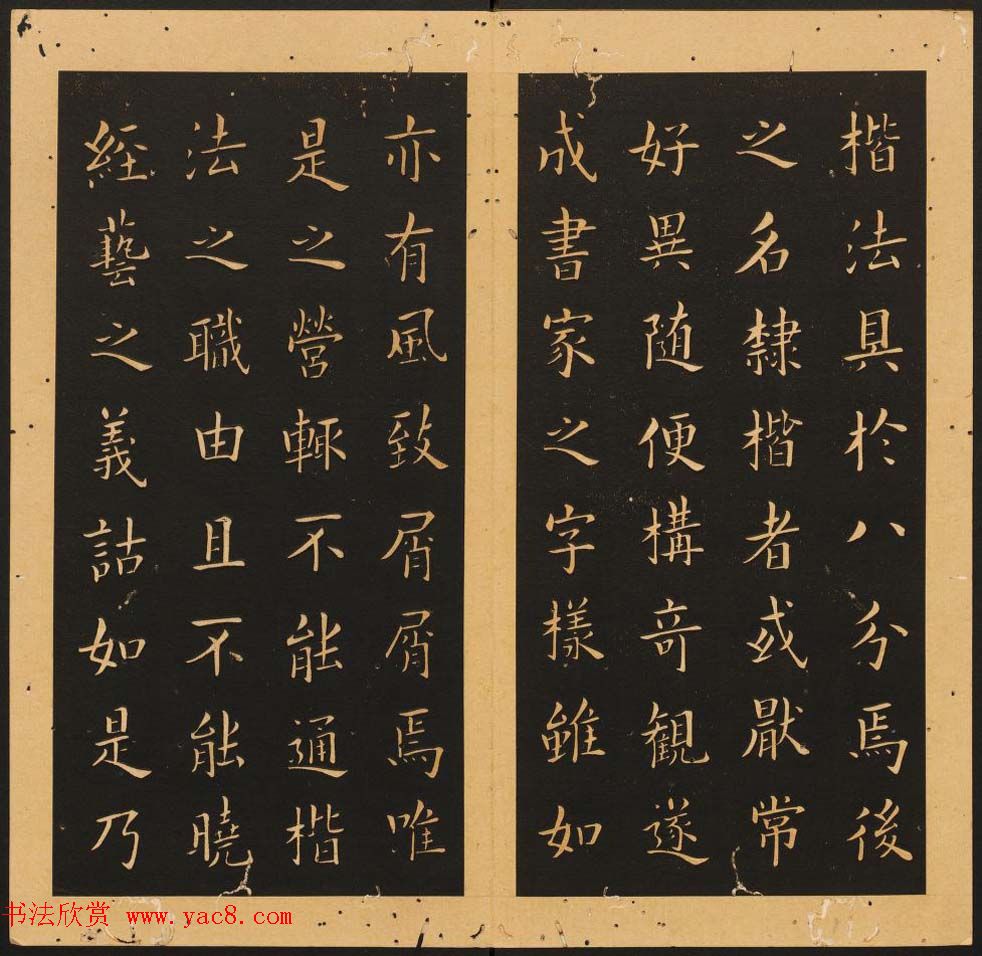 楷法具於八分焉後
之名隸楷者或厭常
好異随便構竒觀遂
成書家之字樣雖如
亦有風致屑屑焉唯
是之營輒不能通楷
法之職由且不能曉
經藝之義詁如是乃
书法欣赏 www.yac8.com